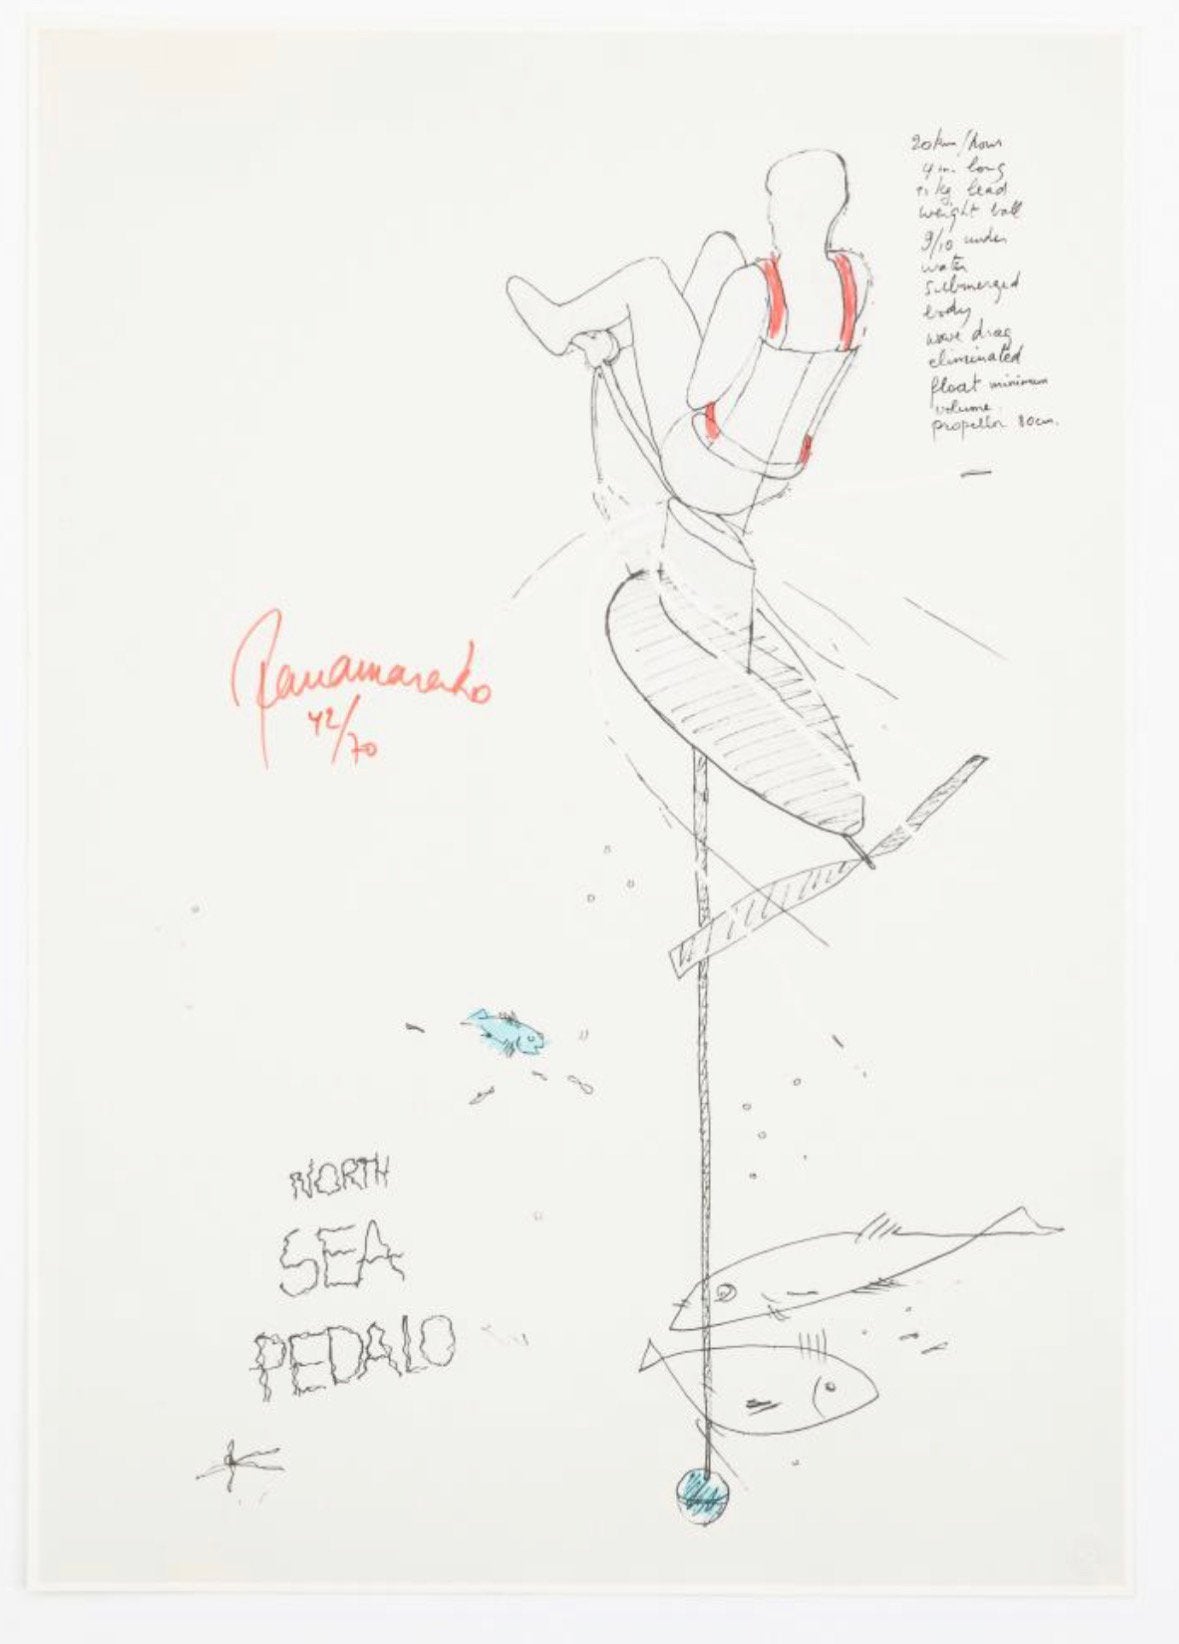 20km/hour
4 m. long
kg lead
weight ball
9/10 under
water
submerged
body
wave drag
eliminated
float minimum
volume.
propellor 80cm.
Panamarenko
42/70
NORTH
SEA
PEDALO